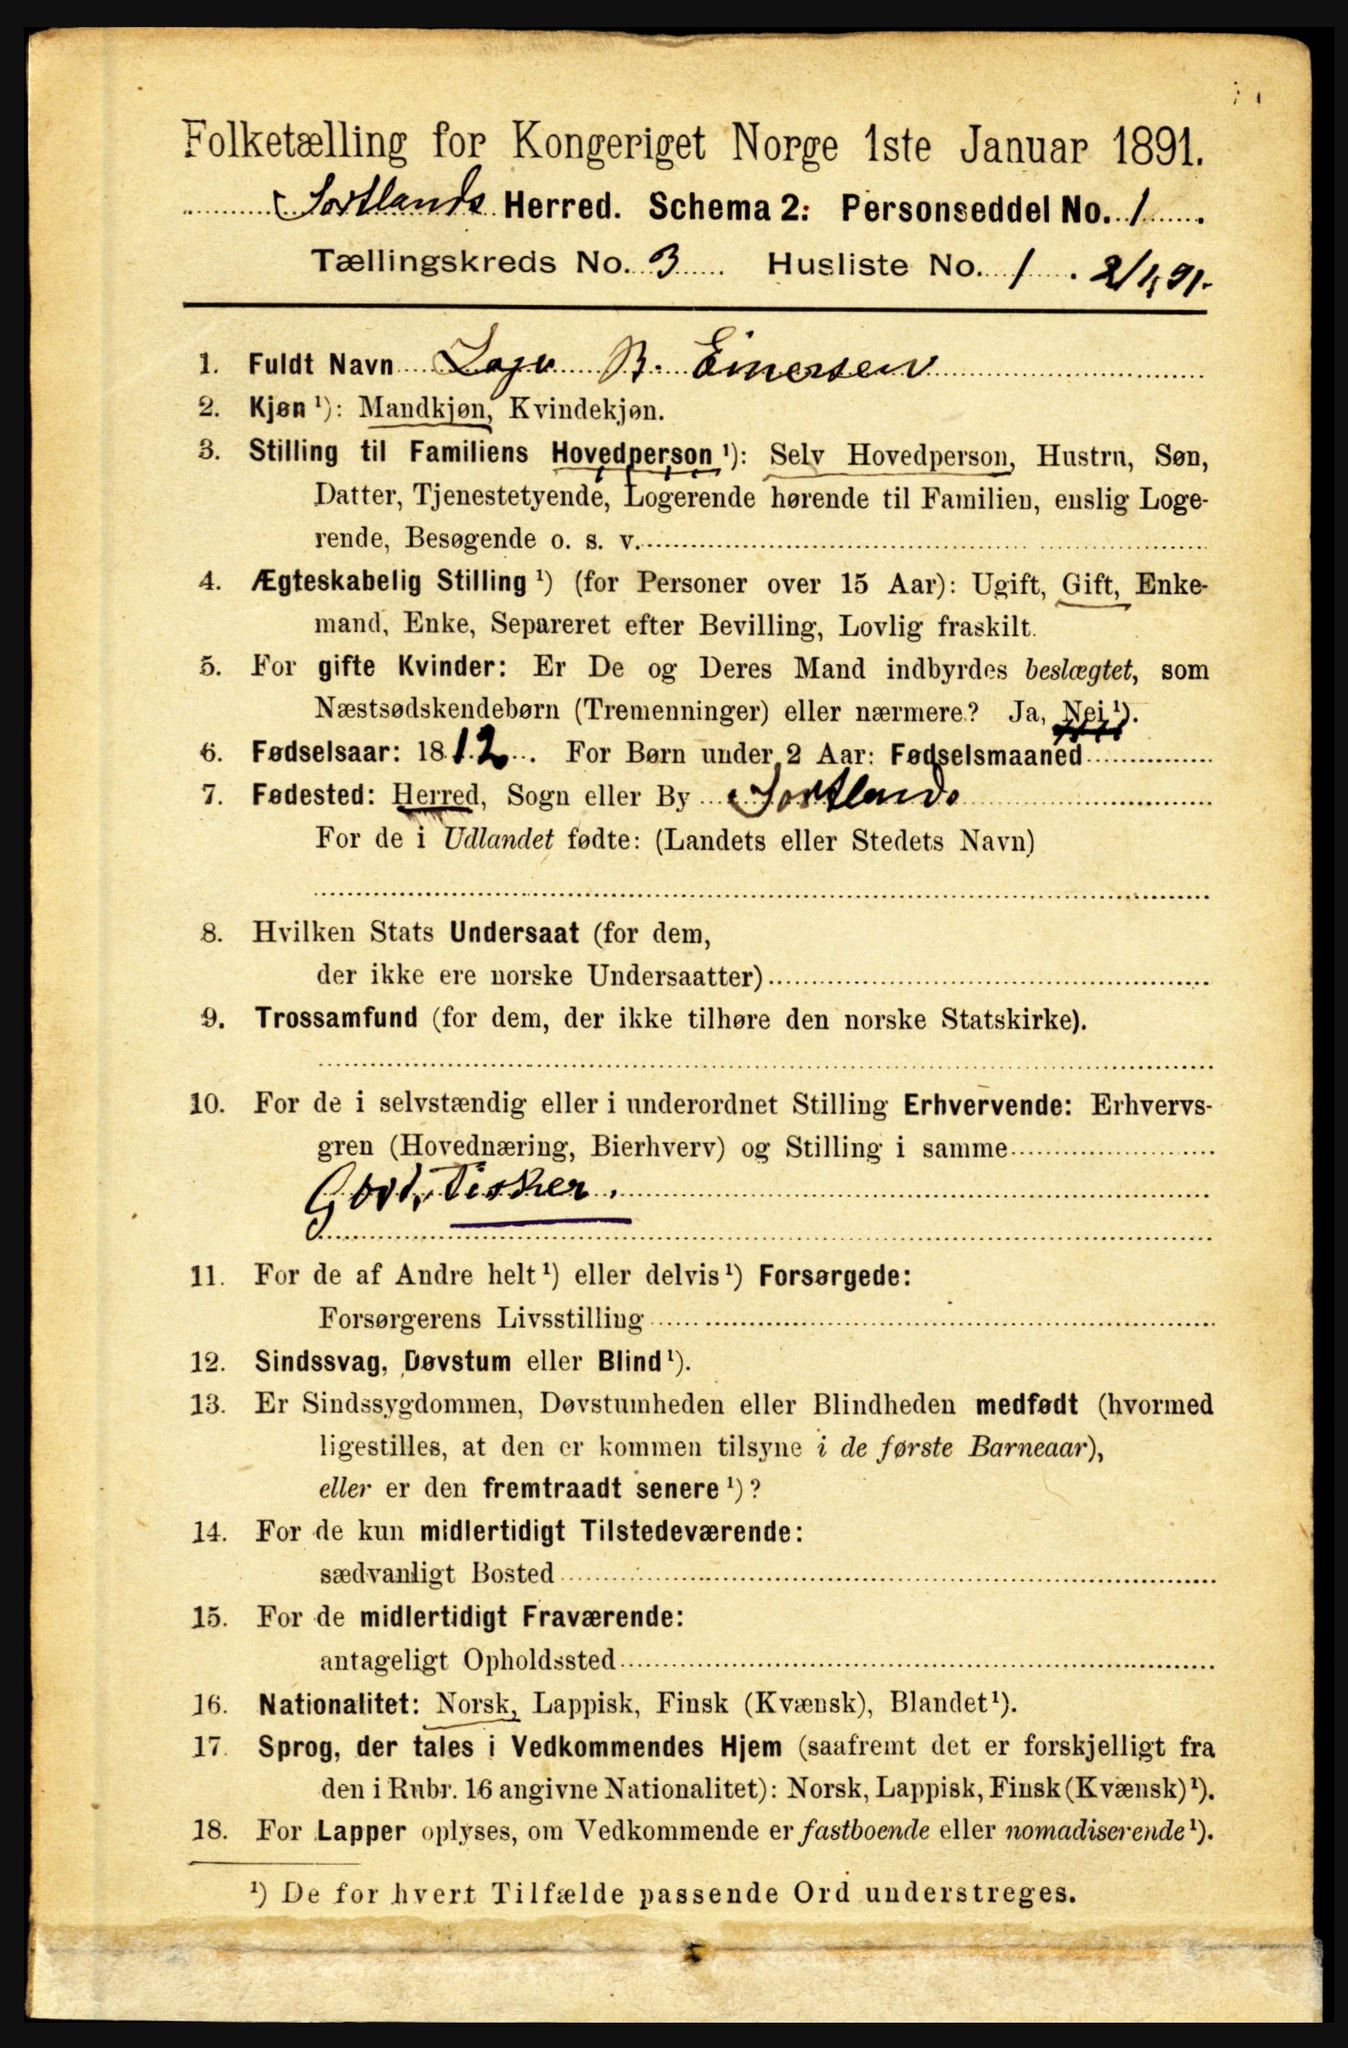 Folketælling for Kongeriget Norge 1ste Januar 1891.
Sortlands Herred. Schema 2: Personseddel No. 1
Tællingskreds No. 3 Husliste No. 1. 2/1,91.
1. Fuldt Navn B. Einersen
2. Kjøn ¹): Mandkjøn, Kvindekjøn.
3. Stilling til Familiens Hovedperson ¹): Selv Hovedperson, Hustru, Søn,
Datter, Tjenestetyende, Logerende hørende til Familien, enslig Loge-
rende, Besøgende o. s. v.
4. Ægteskabelig Stilling ¹) (for Personer over 15 Aar): Ugift, Gift, Enke-
mand, Enke, Separeret efter Bevilling, Lovlig fraskilt.
5. For gifte Kvinder: Er De og Deres Mand indbyrdes beslægtet, som
Næstsødskendebørn (Tremenninger) eller nærmere? Ja, Nei ¹).
6. Fødselsaar: 1812. For Børn under 2 Aar: Fødselsmaaned
7. Fødested: Herred, Sogn eller By Sortlands
For de i Udlandet fødte: (Landets eller Stedets Navn)
8. Hvilken Stats Undersaat (for dem,
der ikke ere norske Undersaatter)
9. Trossamfund (for dem, der ikke tilhøre den norske Statskirke).
10. For de i selvstændig eller i underordnet Stilling Erhvervende: Erhvervs-
gren (Hovednæring, Bierhverv) og Stilling i samme
Fisker.
11. For de af Andre helt ¹) eller delvis ¹) Forsørgede:
Forsørgerens Livsstilling
12. Sindssvag, Døvstum eller Blind ¹).
13. Er Sindssygdommen, Døvstumheden eller Blindheden medfødt (hvormed
ligestilles, at den er kommen tilsyne i de første Barneaar),
eller er den fremtraadt senere ¹)?
14. For de kun midlertidigt Tilstedeværende:
sædvanligt Bosted
15. For de midlertidigt Fraværende:
antageligt Opholdssted
16. Nationalitet: Norsk, Lappisk, Finsk (Kvænsk), Blandet ¹).
17. Sprog, der tales i Vedkommendes Hjem (saafremt det er forskjelligt fra
den i Rubr. 16 angivne Nationalitet): Norsk, Lappisk, Finsk (Kvænsk) ¹).
18. For Lapper oplyses, om Vedkommende er fastboende eller nomadiserende ¹).
¹) De for hvert Tilfælde passende Ord understreges.